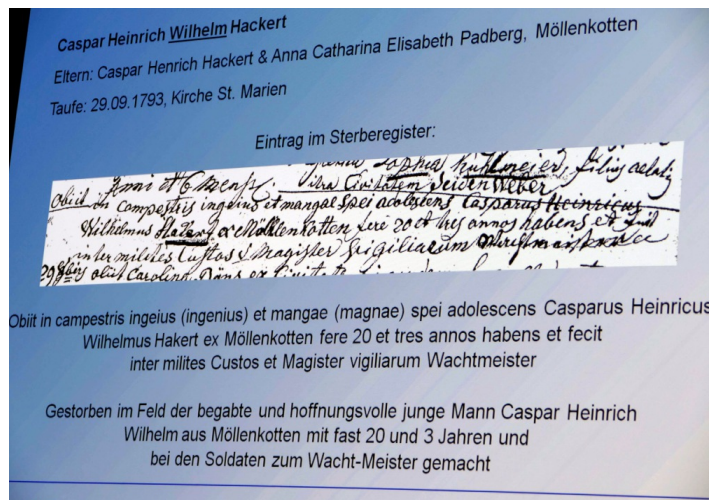 Caspar Heinrich Wilhelm Hackert
Eltern: Caspar Henrich Hackert & Anna Catharina Elisabeth Padberg, Möllenkotten
Taufe: 29.09.1793, Kirche St. Marien
Eintrag im Sterberegister:
Kuhlmeijer, filius aelatis
Anni et 6 mensr. extra Civitatem Seiden Weber
obiit in campestris ingeius et mangae spei adolescens Casparus Heinricus
Wilhelmus Hakert ex Möllenkotten fere 20 et tres annos habens et fecit
inter milites Custos & Magister vigiliarum
obiit Carolina
Obiit in campestris ingeius (ingenius) et mangae (magnae) spei adolescens Casparus Heinricus
Wilhelmus Hakert ex Möllenkotten fere 20 et tres annos habens et fecit
inter milites Custos et Magister vigiliarum Wachtmeister
Gestorben im Feld der begabte und hoffnungsvolle junge Mann Caspar Heinrich
Wilhelm aus Möllenkotten mit fast 20 und 3 Jahren und
bei den Soldaten zum Wacht-Meister gemacht